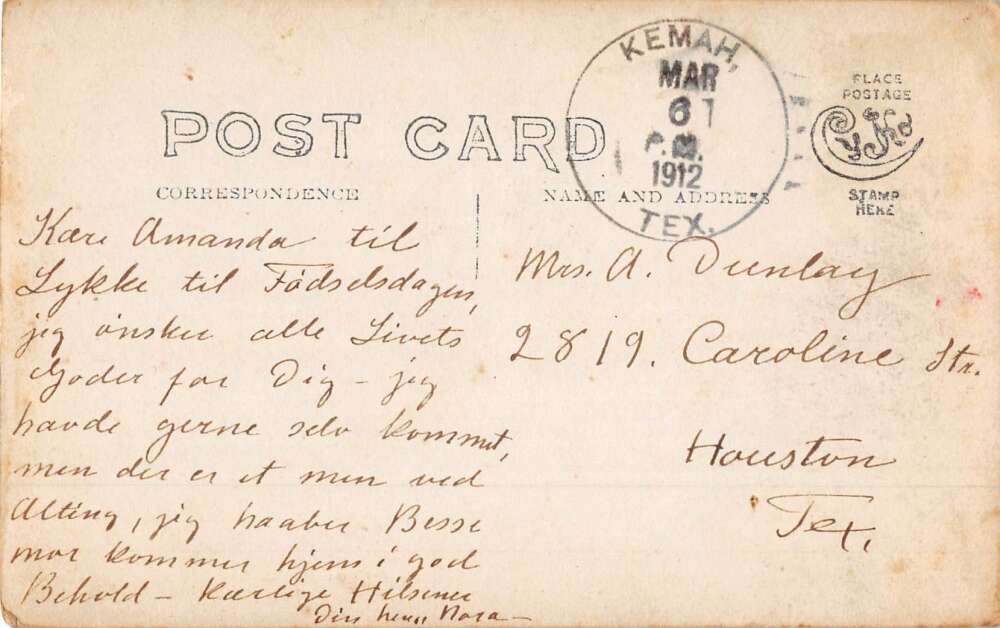 POST CARD
KEMAH,
MAR
6
P.M.
1912
TEX.
PLACE
POSTAGE
CYKO
STAMP
HERE
CORRESPONDENCE
NAME AND ADDRESS
Kære Amanda til
Lykke til Fødselsdagen,
jeg ønsker alle Livets
Goder for Dig – jeg
havde gerne selv kommet,
men der er et men ved
Alting, jeg haaber Besse
mor kommer hjem i god
Behold – Kærlige Hilsener
Din Nora –
Mrs. A. Dunlay
2819. Caroline Str.
Houston
Tex.